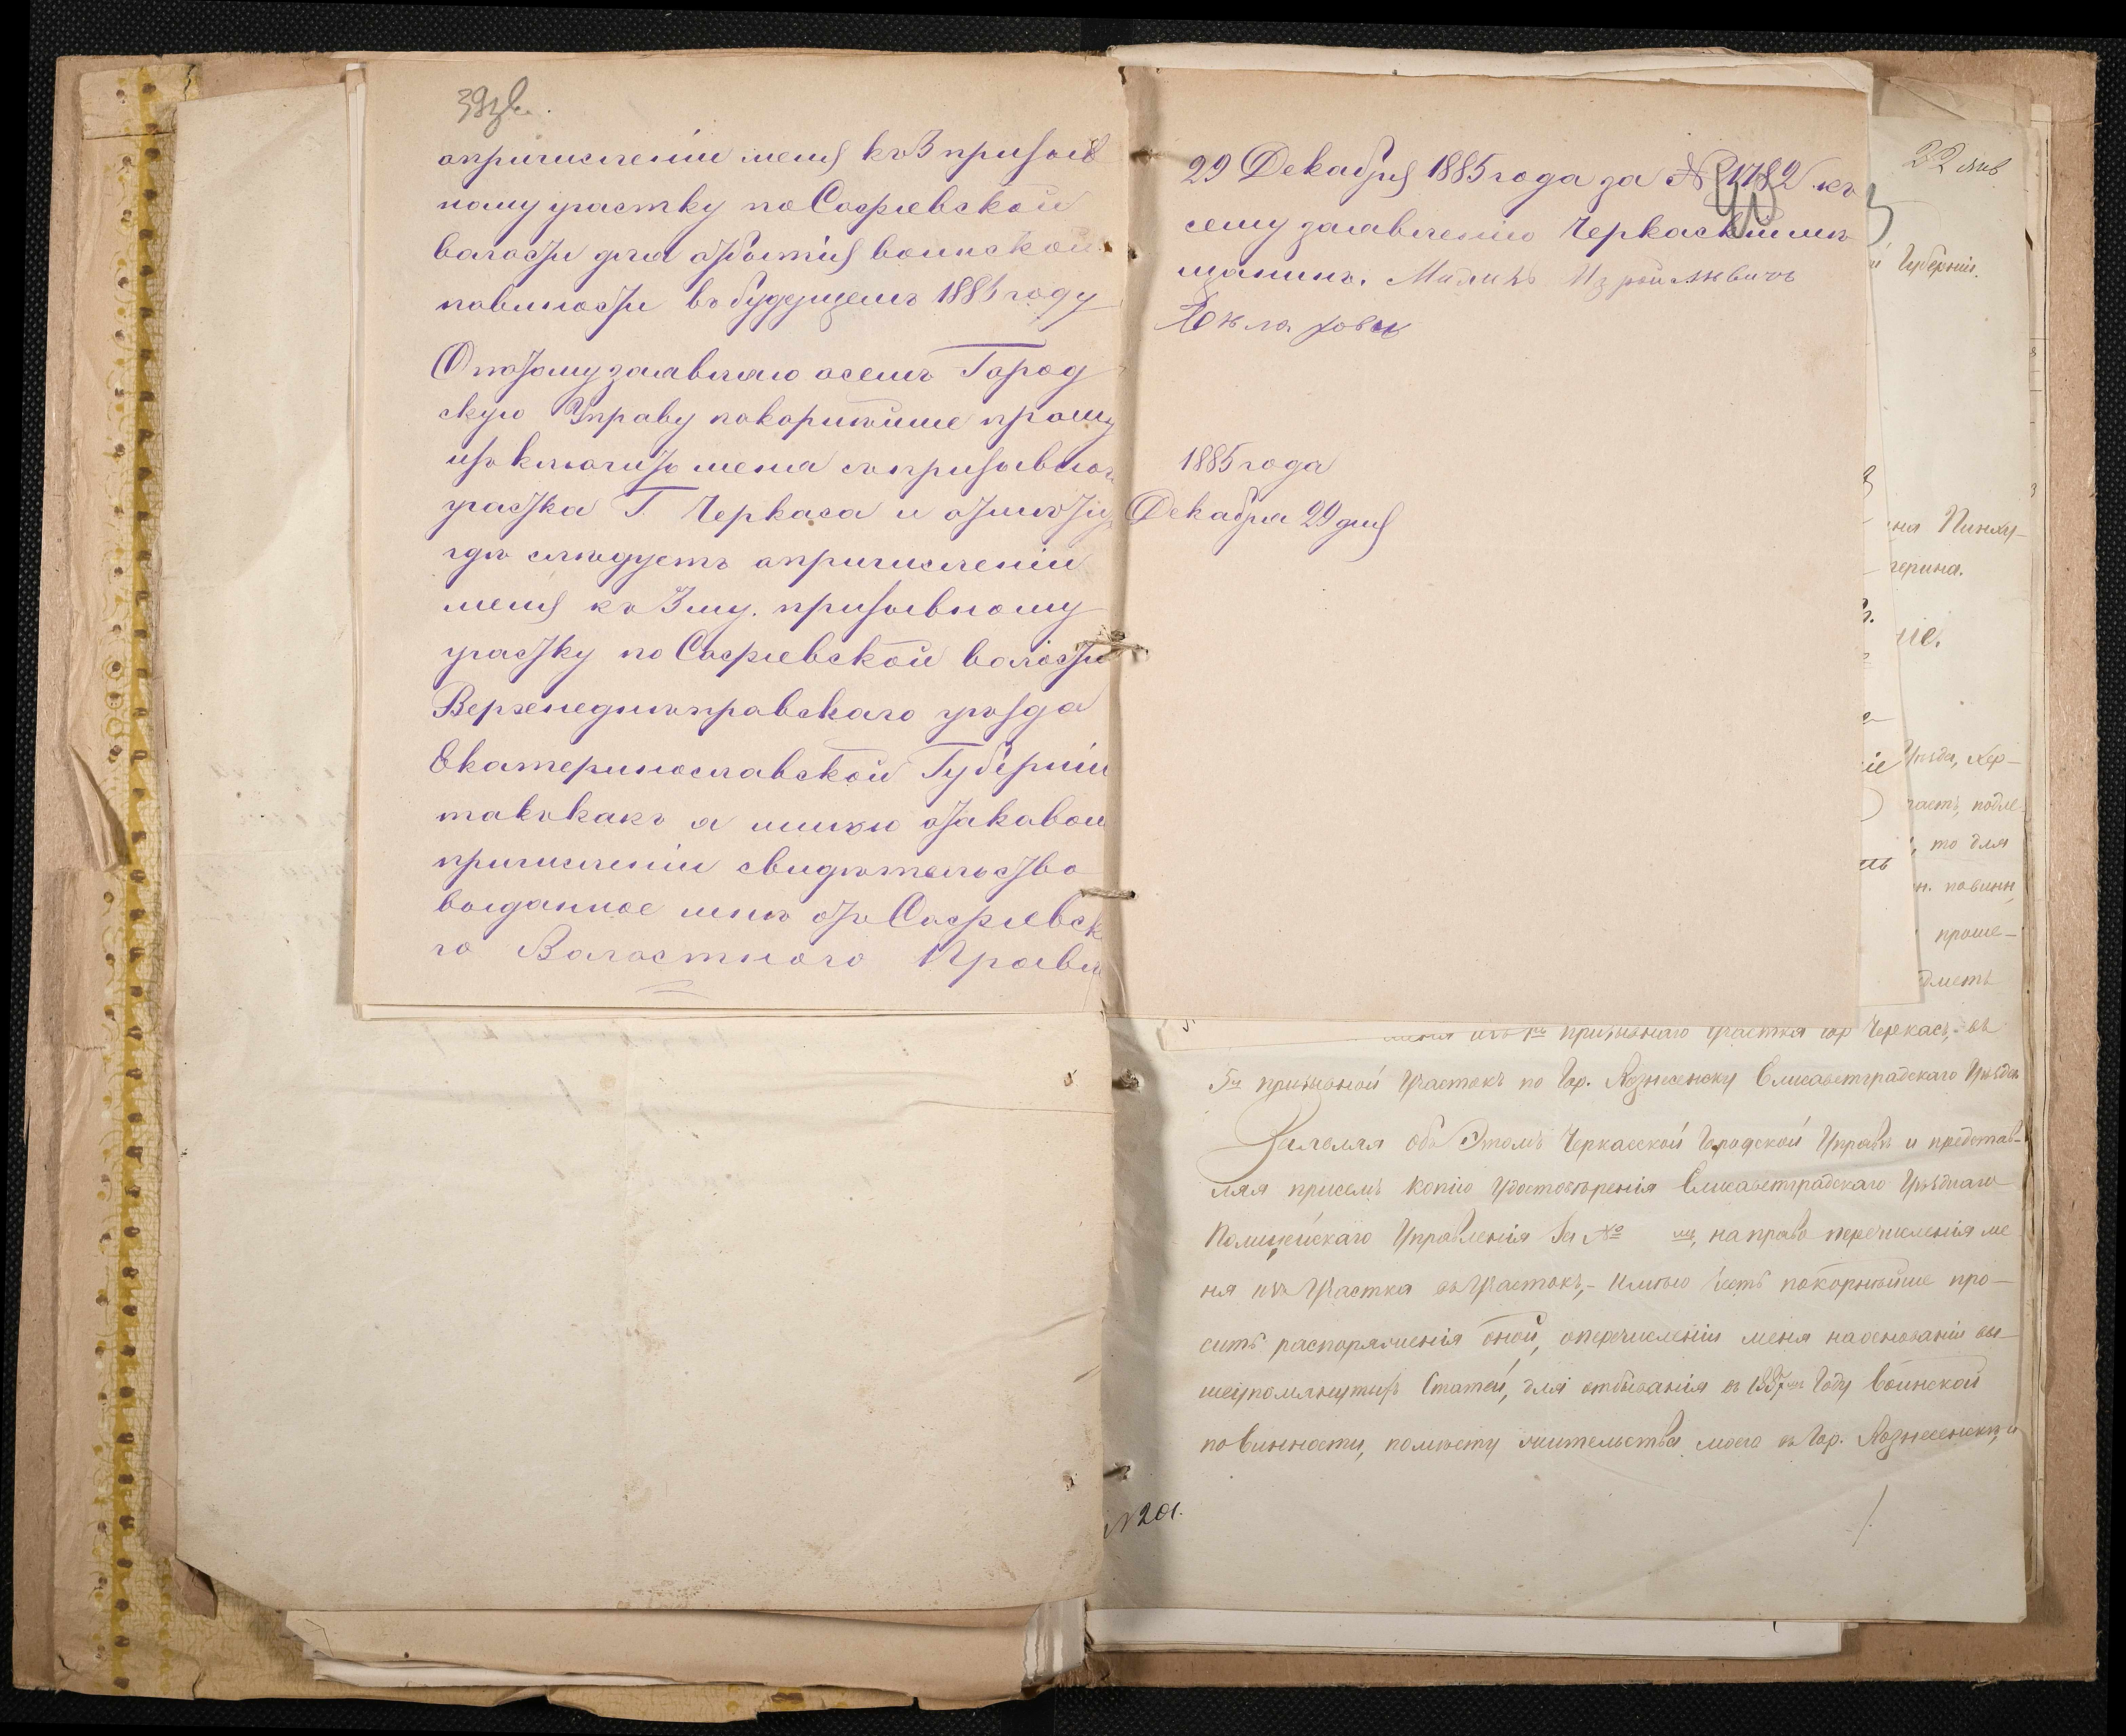 опричисленіи меня къ 3 призыв
ному участку по Софіевской
волости для отбытія воинской
повиности въ будущемъ 1885 году
О потому заявляю осемъ Город
скую Управу покорнѣйше прошу
изъ ключить меня съ призывного
участка Г. Черкаса и
гдѣ слѣдуетъ опричисленіи
меня къ 3му. призывному
участку по Софіевской волости
Верхенеднѣпровскаго уѣзда
Екатеринославской Губерніи
такъ какъ я имѣю отаковой
причисленіи свидѣтельство
выданное мнѣ отъ Софіевск
го Волостного Правл
29 Декабря 1885 года за № 1782 къ
сему заявленію Черкаскій мѣ
щанинъ.
1885 года
Декабря 29 дня
22 янв
Губерніи.
ня Пинху-
ерина.
іе.
Уѣзда, Хер-
часть, подле
, то для
н. повинн
проше-
меня изъ 1го призывнаго участка гор Черкасъ, въ
5й призывной Участокъ по Гор. Вознесенску Елисаветградскаго Уѣзда
Заявляя объ Этомъ Черкасской Городской Управѣ и представ-
ляя присемъ копію Удостовѣренія Елисаветградскаго Уѣзднаго
Полицейскаго Управленія за № на право перечисленія ме
ня изъ Участка въ Участокъ,- Имѣю честь покорнѣйше про-
сить распоряженія оной, оперечисленіи меня наоснованіи вы-
шеупомянутыхъ Статей, для отбыванія въ 1887мъ Году Воинской
повинности, помѣсту жительства моего въ Гор. Вознесенскѣ, и
№ 201.